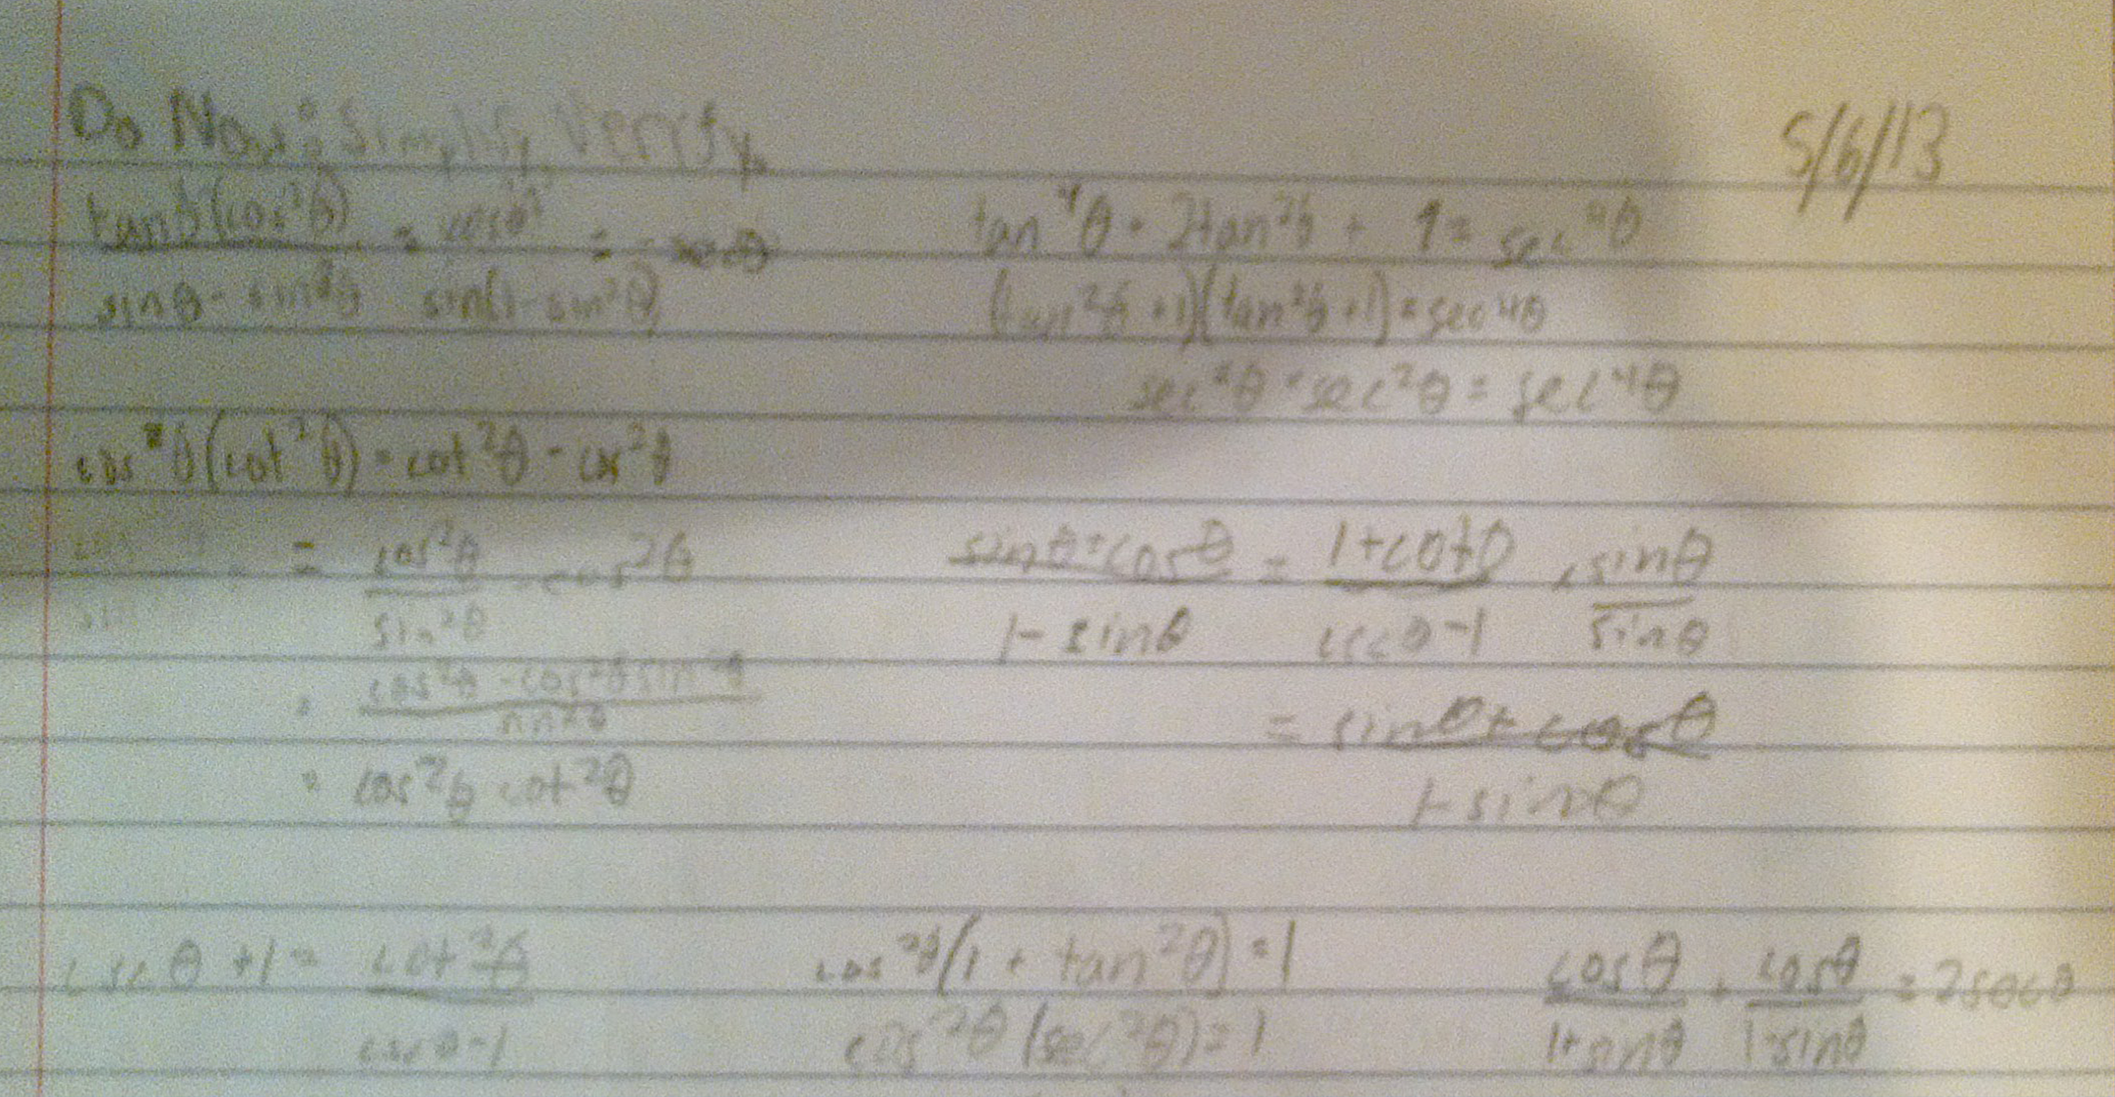 Do Now: Simplify, Verify.
5/6/13
tanθ(cos²θ) / sinθ - sin³θ = cosθ / sin(1-sin²θ) =
tan⁴θ + 2tan²θ + 1 = sec⁴θ
(tan²θ +1)(tan²θ +1) = sec⁴θ
sec²θ · sec²θ = sec⁴θ
cos²θ(cot²θ) = cot²θ - cos²θ
= cos²θ / sin²θ - cos²θ
= cos²θ - cos²θ sin²θ / sin²θ
= cos²θ cot²θ
sinθ + cosθ / 1 - sinθ = 1 + cotθ / cscθ - 1 · sinθ / sinθ
= sinθ + cosθ / 1 - sinθ
cscθ + 1 = cot²θ / cscθ - 1
cos²θ(1 + tan²θ) = 1
cos²θ(sec²θ) = 1
cosθ / 1+sinθ + cosθ / 1-sinθ = 2secθ